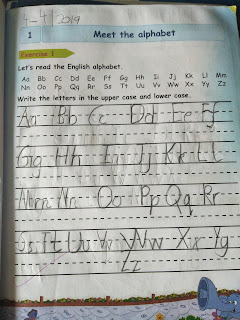 4-4/2019
1 Meet the alphabet
Exercise 1
Let's read the English alphabet.
Aa Bb Cc Dd Ee Ff Gg Hh Ii Jj Kk Ll Mm
Nn Oo Pp Qq Rr Ss Tt Uu Vv Ww Xx Yy Zz
Write the letters in the upper case and lower case.
Aa Bb Cc Dd Ee Ff
Gg Hh Ii Jj Kk Ll
Mm Nn Oo Pp Qq Rr
Ss Tt Uu Vv Ww Xx Yy
Zz